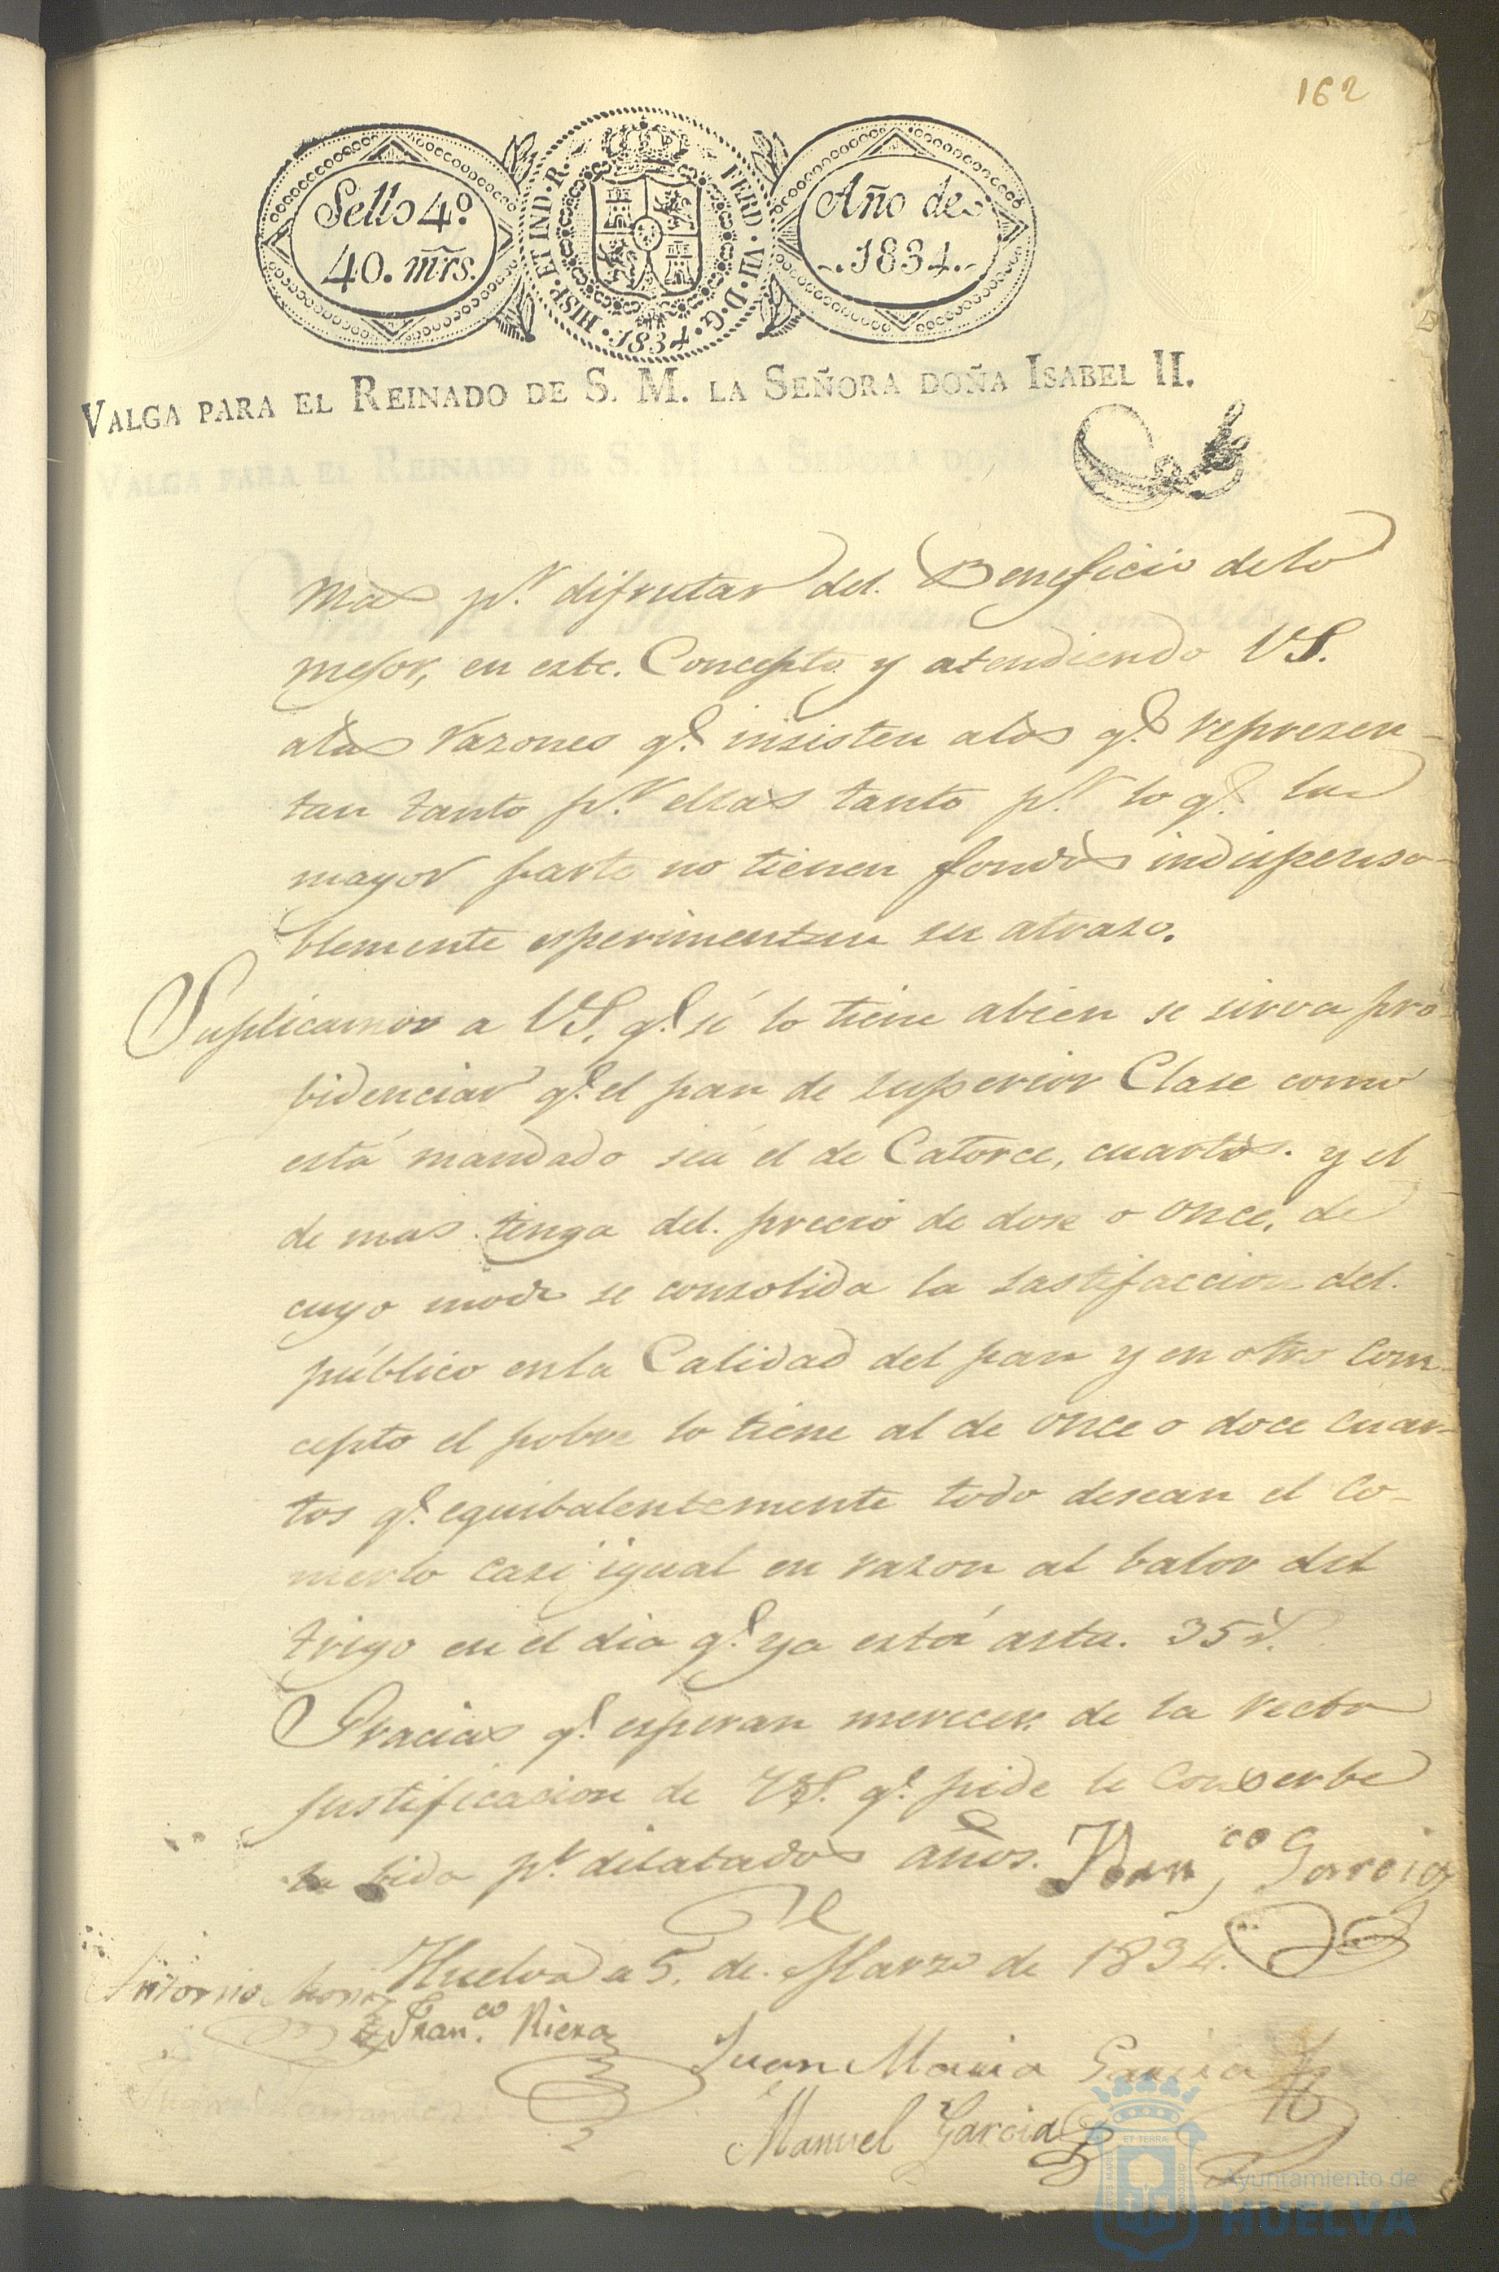 162
Sello 4º
40. mrs.
HISP. ET IND. R. FERD. VII. D. G. 1834.
Año de
1834.
VALGA PARA EL REINADO DE S. M. LA SEÑORA DOÑA ISABEL II.
mas pr. difrutar del. Beneficio de lo
mejor, en este. Concepto y atendiendo VS.
alas razones q.e insisten alos q.e represen-
tan tanto p.r ellas tanto p.r lo q.e la
mayor parte no tienen fondos indispensa-
blemente esperimentan su atraso.
Suplicamos a VS. q.e si lo tiene abien se sirva pro-
bidenciar q.e el pan de superior Clase como
está mandado sea el de Catorce, cuartos. y el
de mas tenga del. precio de dose o once, de
cuyo modo se consolida la sastifaccion del.
público en la Calidad del pan y en otro Con-
cepto el pobre lo tiene al de once o doce cuar-
tos q.e equibalentemente todo desean el Co-
merlo casi igual en razon al balor del
trigo en el dia q.e ya está asta. 35 r.s
Gracias q.e esperan merecer de la recta
justificacion de VS. q.e pide le conserbe
la bida p.r dilatados años. Fran.co Garcia
Huelva a 5. de. Marzo de 1834.
Antonio
Fran.co Riera
Juan Maria Garcia
Manuel Garcia
ET TERRAE
Ayuntamiento de
HUELVA